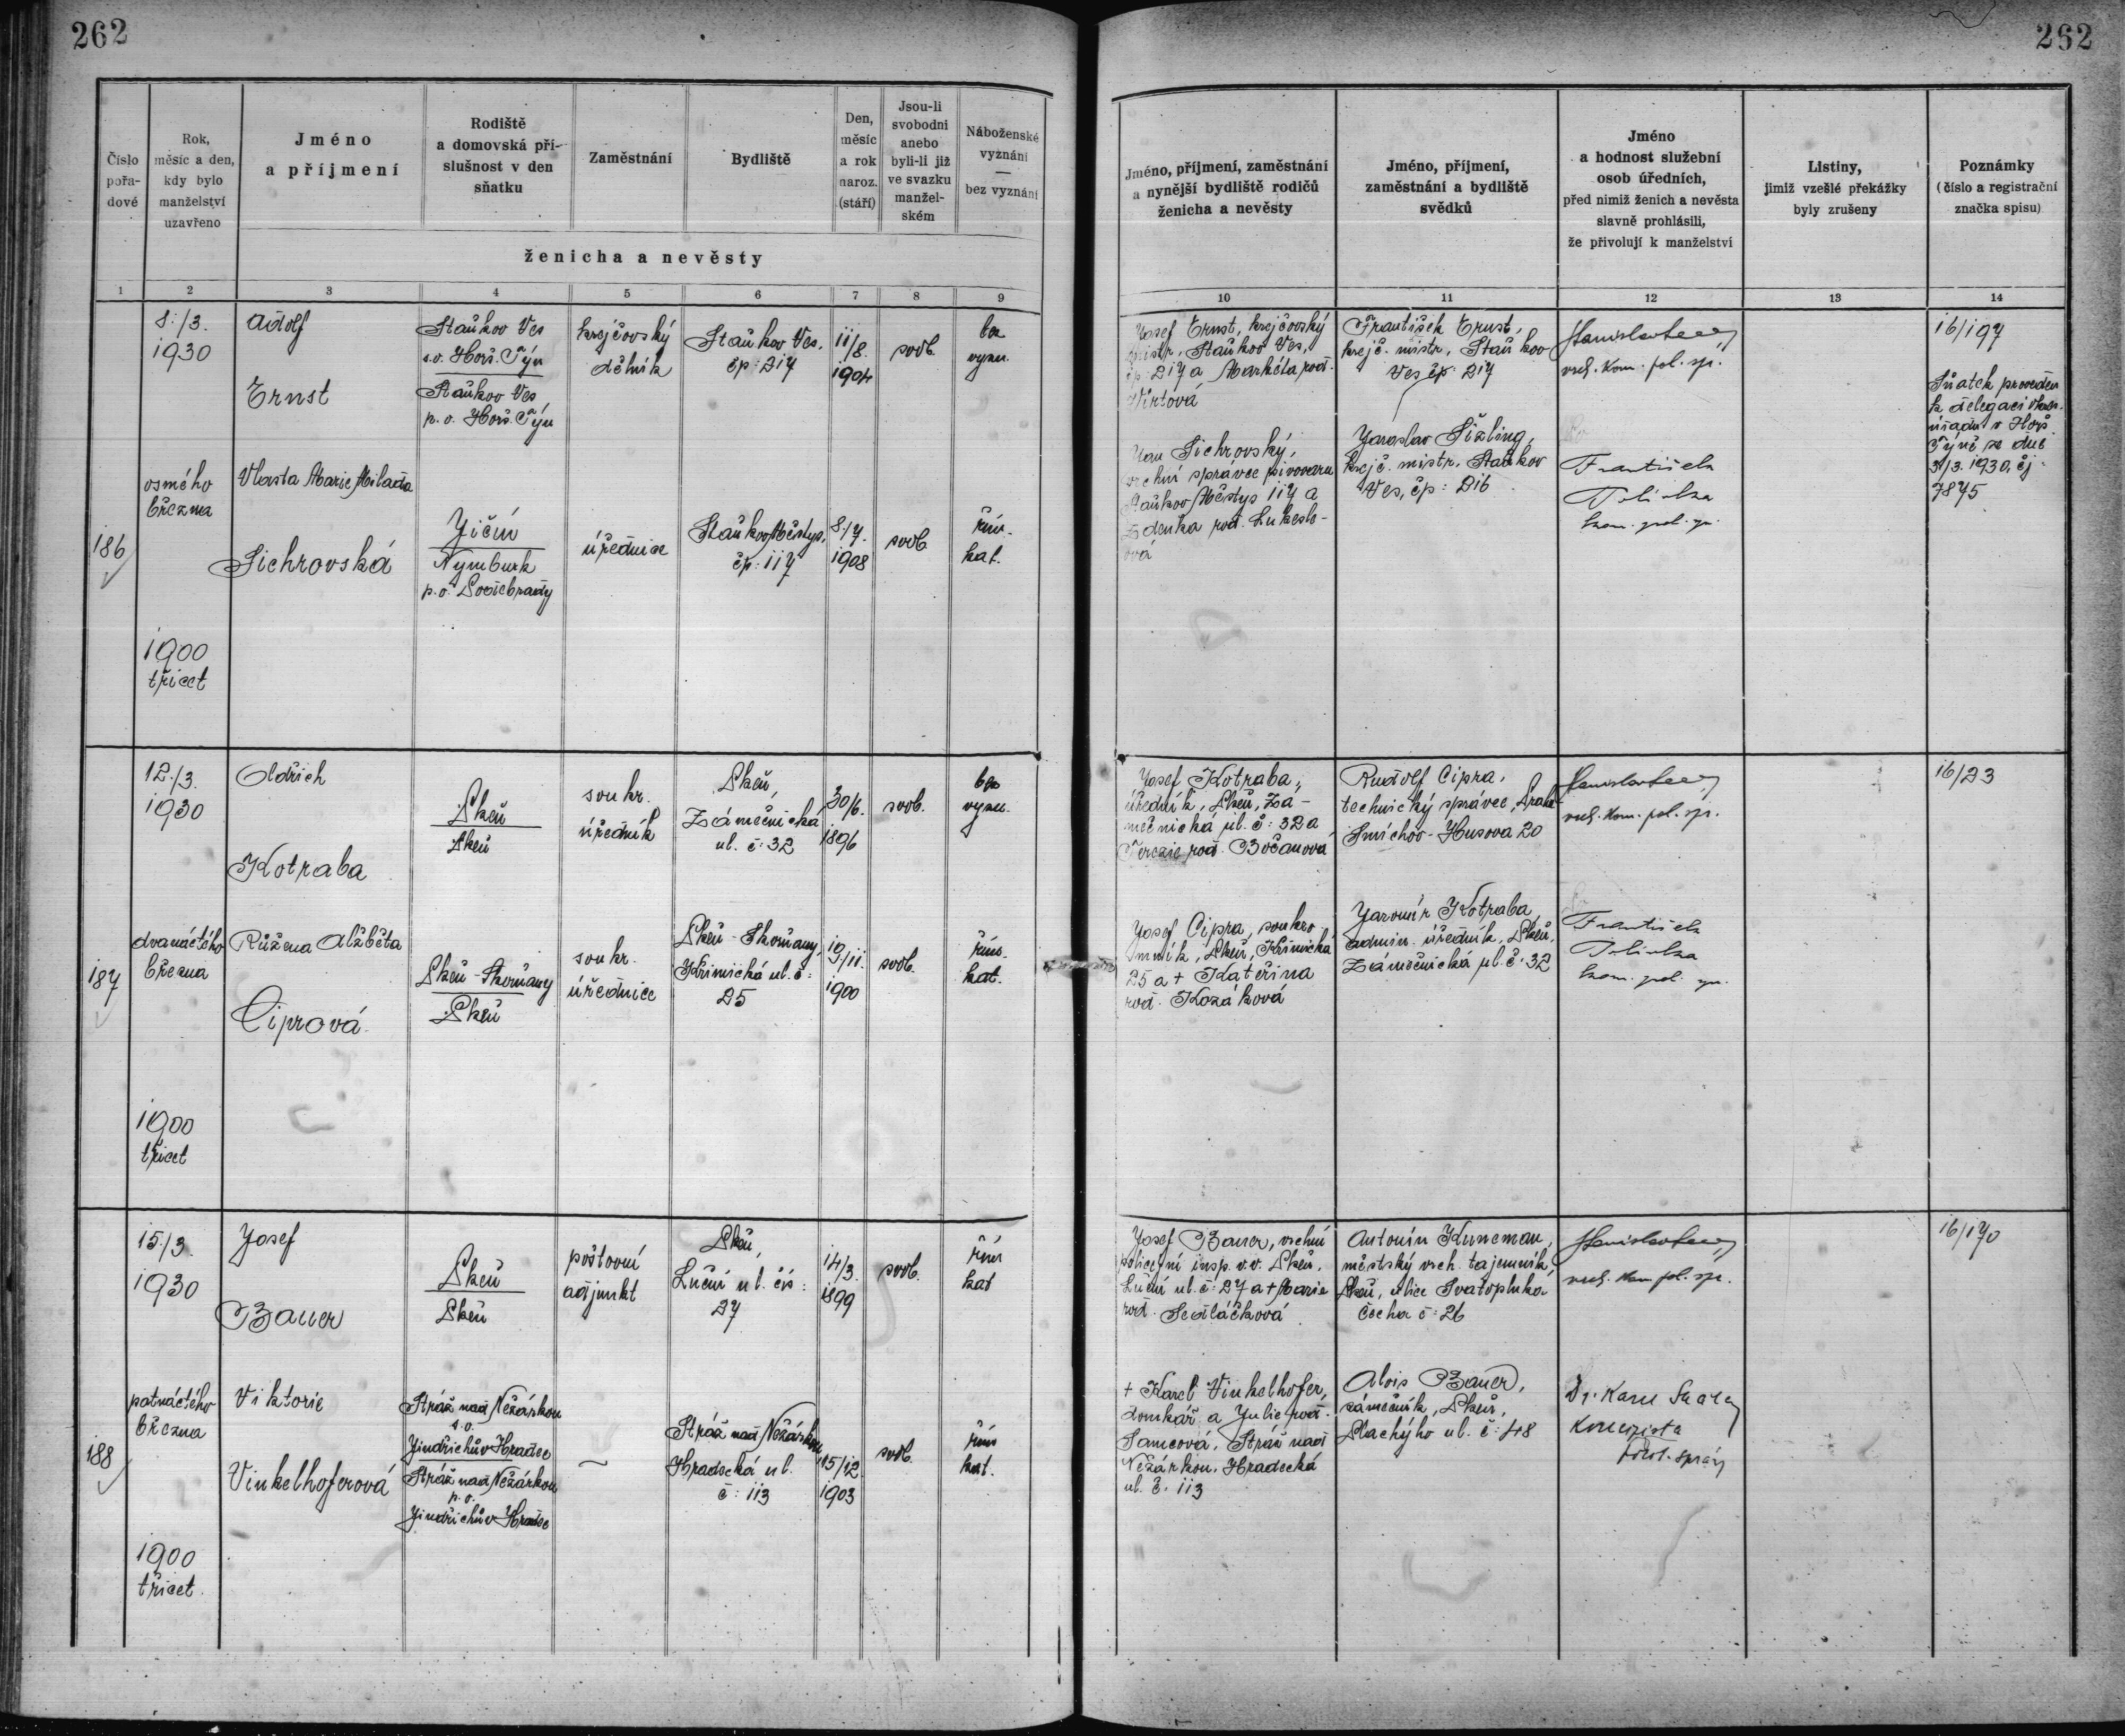 262
262
Číslo
pořa-
dové
Rok,
měsíc a den,
kdy bylo
manželství
uzavřeno
Jméno
a příjmení
Rodiště
a domovská pří-
slušnost v den
sňatku
Zaměstnání
Bydliště
Den,
měsíc
a rok
naroz.
(stáří)
Jsou-li
svobodni
anebo
byli-li již
ve svazku
manžel-
ském
Náboženské
vyznání
—
bez vyznání
ženicha a nevěsty
Jméno, příjmení, zaměstnání
a nynější bydliště rodičů
ženicha a nevěsty
Jméno, příjmení,
zaměstnání a bydliště
svědků
Jméno
a hodnost služební
osob úředních,
před nimiž ženich a nevěsta
slavně prohlásili,
že přivolují k manželství
Listiny,
jimiž vzešlé překážky
byly zrušeny
Poznámky
(číslo a registrační
značka spisu)
1 2 3 4 5 6 7 8 9 10 11 12 13 14
186
8./3.
1930
osmého
března
1900
třicet
Adolf
Ernst
Staňkov Ves
s.o. Horš. Týn
Staňkov Ves
p. o. Horš. Týn
krejčovský
dělník
Staňkov Ves,
čp: 217
11/8.
1904
svob.
bez
vyzn.
Vlasta Marie Milada
Sichrovská
Jičín
Nymburk
p. o. Poděbrady
úřednice
Staňkov Městys,
čp: 117
8./7.
1908
svob.
řím.
kat.
Josef Ernst, krejčovský
mistr, Staňkov Ves,
čp: 217 a Markéta rod.
Wirtová
Jan Sichrovský,
vrchní správce pivovaru
Staňkov Městys 117 a
Zdenka rod. Lukeslo-
ová
František Ernst,
krejč. mistr, Staňkov
Ves čp: 217
Jaroslav Sizling,
krejč. mistr, Staňkov
Ves, čp: 216
vrch. kom. pol. spr.
František
kom. pol. spr.
16/197
Sňatek proveden
k delegaci okres.
úřadu v Horš.
Týně ze dne
3/3. 1930, čj:
7875
187
12./3.
1930
dvanáctého
března
1900
třicet
Oldřich
Kotraba
Plzeň
Plzeň
soukr.
úředník
Plzeň,
Zámečnická
ul. č: 32
30/6.
1896
svob.
bez
vyzn.
Růžena Alžběta
Ciprová
Plzeň - Skvrňany
Plzeň
soukr.
úřednice
Plzeň - Skvrňany,
Křimická ul. č:
25
19/11.
1900
svob.
řím.
kat.
Josef Kotraba,
úředník, Plzeň, Zá-
mečnická ul. č: 32 a
Terezie rod. Bočanová
Josef Cipra, soukro
mník, Plzeň, Křimická
25 a + Kateřina
rod. Kozáková
Rudolf Cipra,
technický správce, Praha-
Smíchov - Husova 20
Jaromír Kotraba,
admin. úředník, Plzeň,
Zámečnická ul. č: 32
vrch. kom. pol. spr.
František
kom. pol. spr.
16/23
188
15./3.
1930
patnáctého
března
1900
třicet.
Josef
Bauer
Plzeň
Plzeň
poštovní
adjunkt
Plzeň,
Luční ul. čís:
27
14/3.
1899
svob.
řím
kat
Viktorie
Vinkelhoferová
Stráž nad Nežárkou
s. o.
Jindřichův Hradec
Stráž nad Nežárkou
p. o.
Jindřichův Hradec
Stráž nad Nežárkou
Hradecká ul.
č: 113
15/12.
1903
svob.
řím
kat.
Josef Bauer, vrchní
policejní insp. v.v. Plzeň,
Luční ul. č: 27 a + Marie
rod. Sedláčková
+ Karel Vinkelhofer,
domkář a Julie rod.
Samcová, Stráž nad
Nežárkou, Hradecká
ul. č. 113
Antonín Kuneman,
městský vrch. tajemník,
Plzeň, ulice Svatopluka
Čecha č: 26
Alois Bauer,
zámečník, Plzeň,
Plachýho ul. č: 48
vrch. kom. pol. spr.
Dr. Karel
Koncipista
polit. správy
16/170